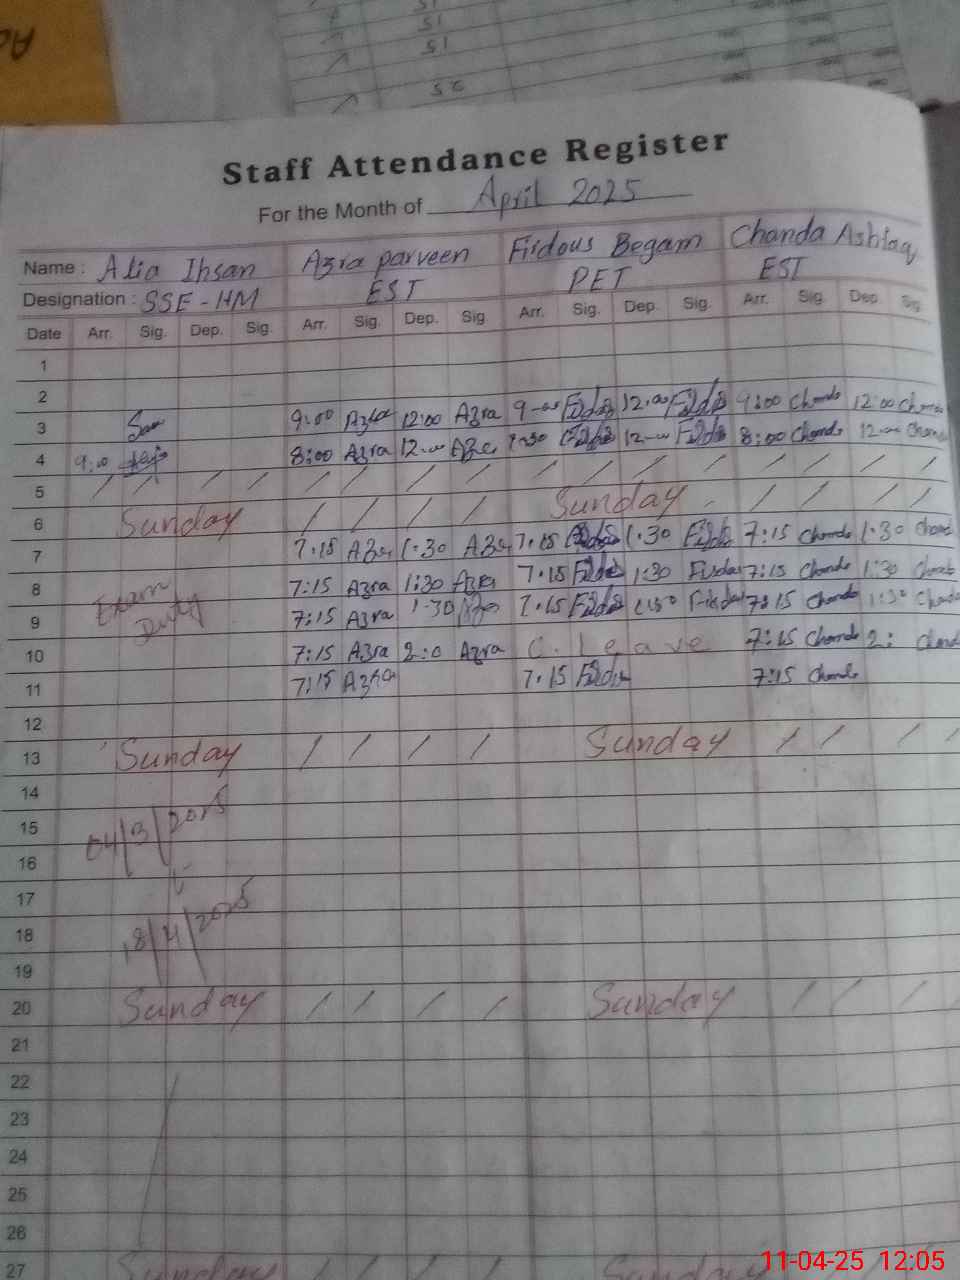 51
51
50
Staff Attendance Register
For the Month of April 2025
Name : Alia Ihsan Azra parveen Firdous Begam Chanda Ashfaq
Designation : SSE - HM EST PET EST
Date Arr. Sig. Dep. Sig. Arr. Sig. Dep. Sig Arr. Sig. Dep. Sig. Arr. Sig. Dep. Sig.
1
2
3 9:00 Azra 12:00 Azra 9-00 12.00 9:00 Chanda 12:00 Chanda
4 9:00 8:00 Azra 12-00 Azra 12-00 8:00 Chanda 12-00 Chanda
5 / / / / / / / / / / / / / / / /
6 Sunday / / / / Sunday - / / / /
7 7:15 Azra 1:30 Azra 7.15 1.30 7:15 Chanda 1.30 Chand
8 7:15 Azra 1:30 Azra 7.15 1:30 Firdas 7:15 Chanda 1:30 Chanda
Exam Duty
9 7:15 Azra 1-30 7.15 7:15 Chanda 1:30 Chanda
10 7:15 Azra 2:0 Azra C. leave 7:15 Chanda 2: Chand
11 7:15 Azra 7.15 7:15 Chanda
12
13 Sunday / / / / Sunday / / / /
14
15 04/3/2025
16
17
18 18/4/2025
19
20 Sunday / / / / Sunday / / / /
21
22
23
24
25
26
27 Sunday / / / / Sunday
11-04-25 12:05